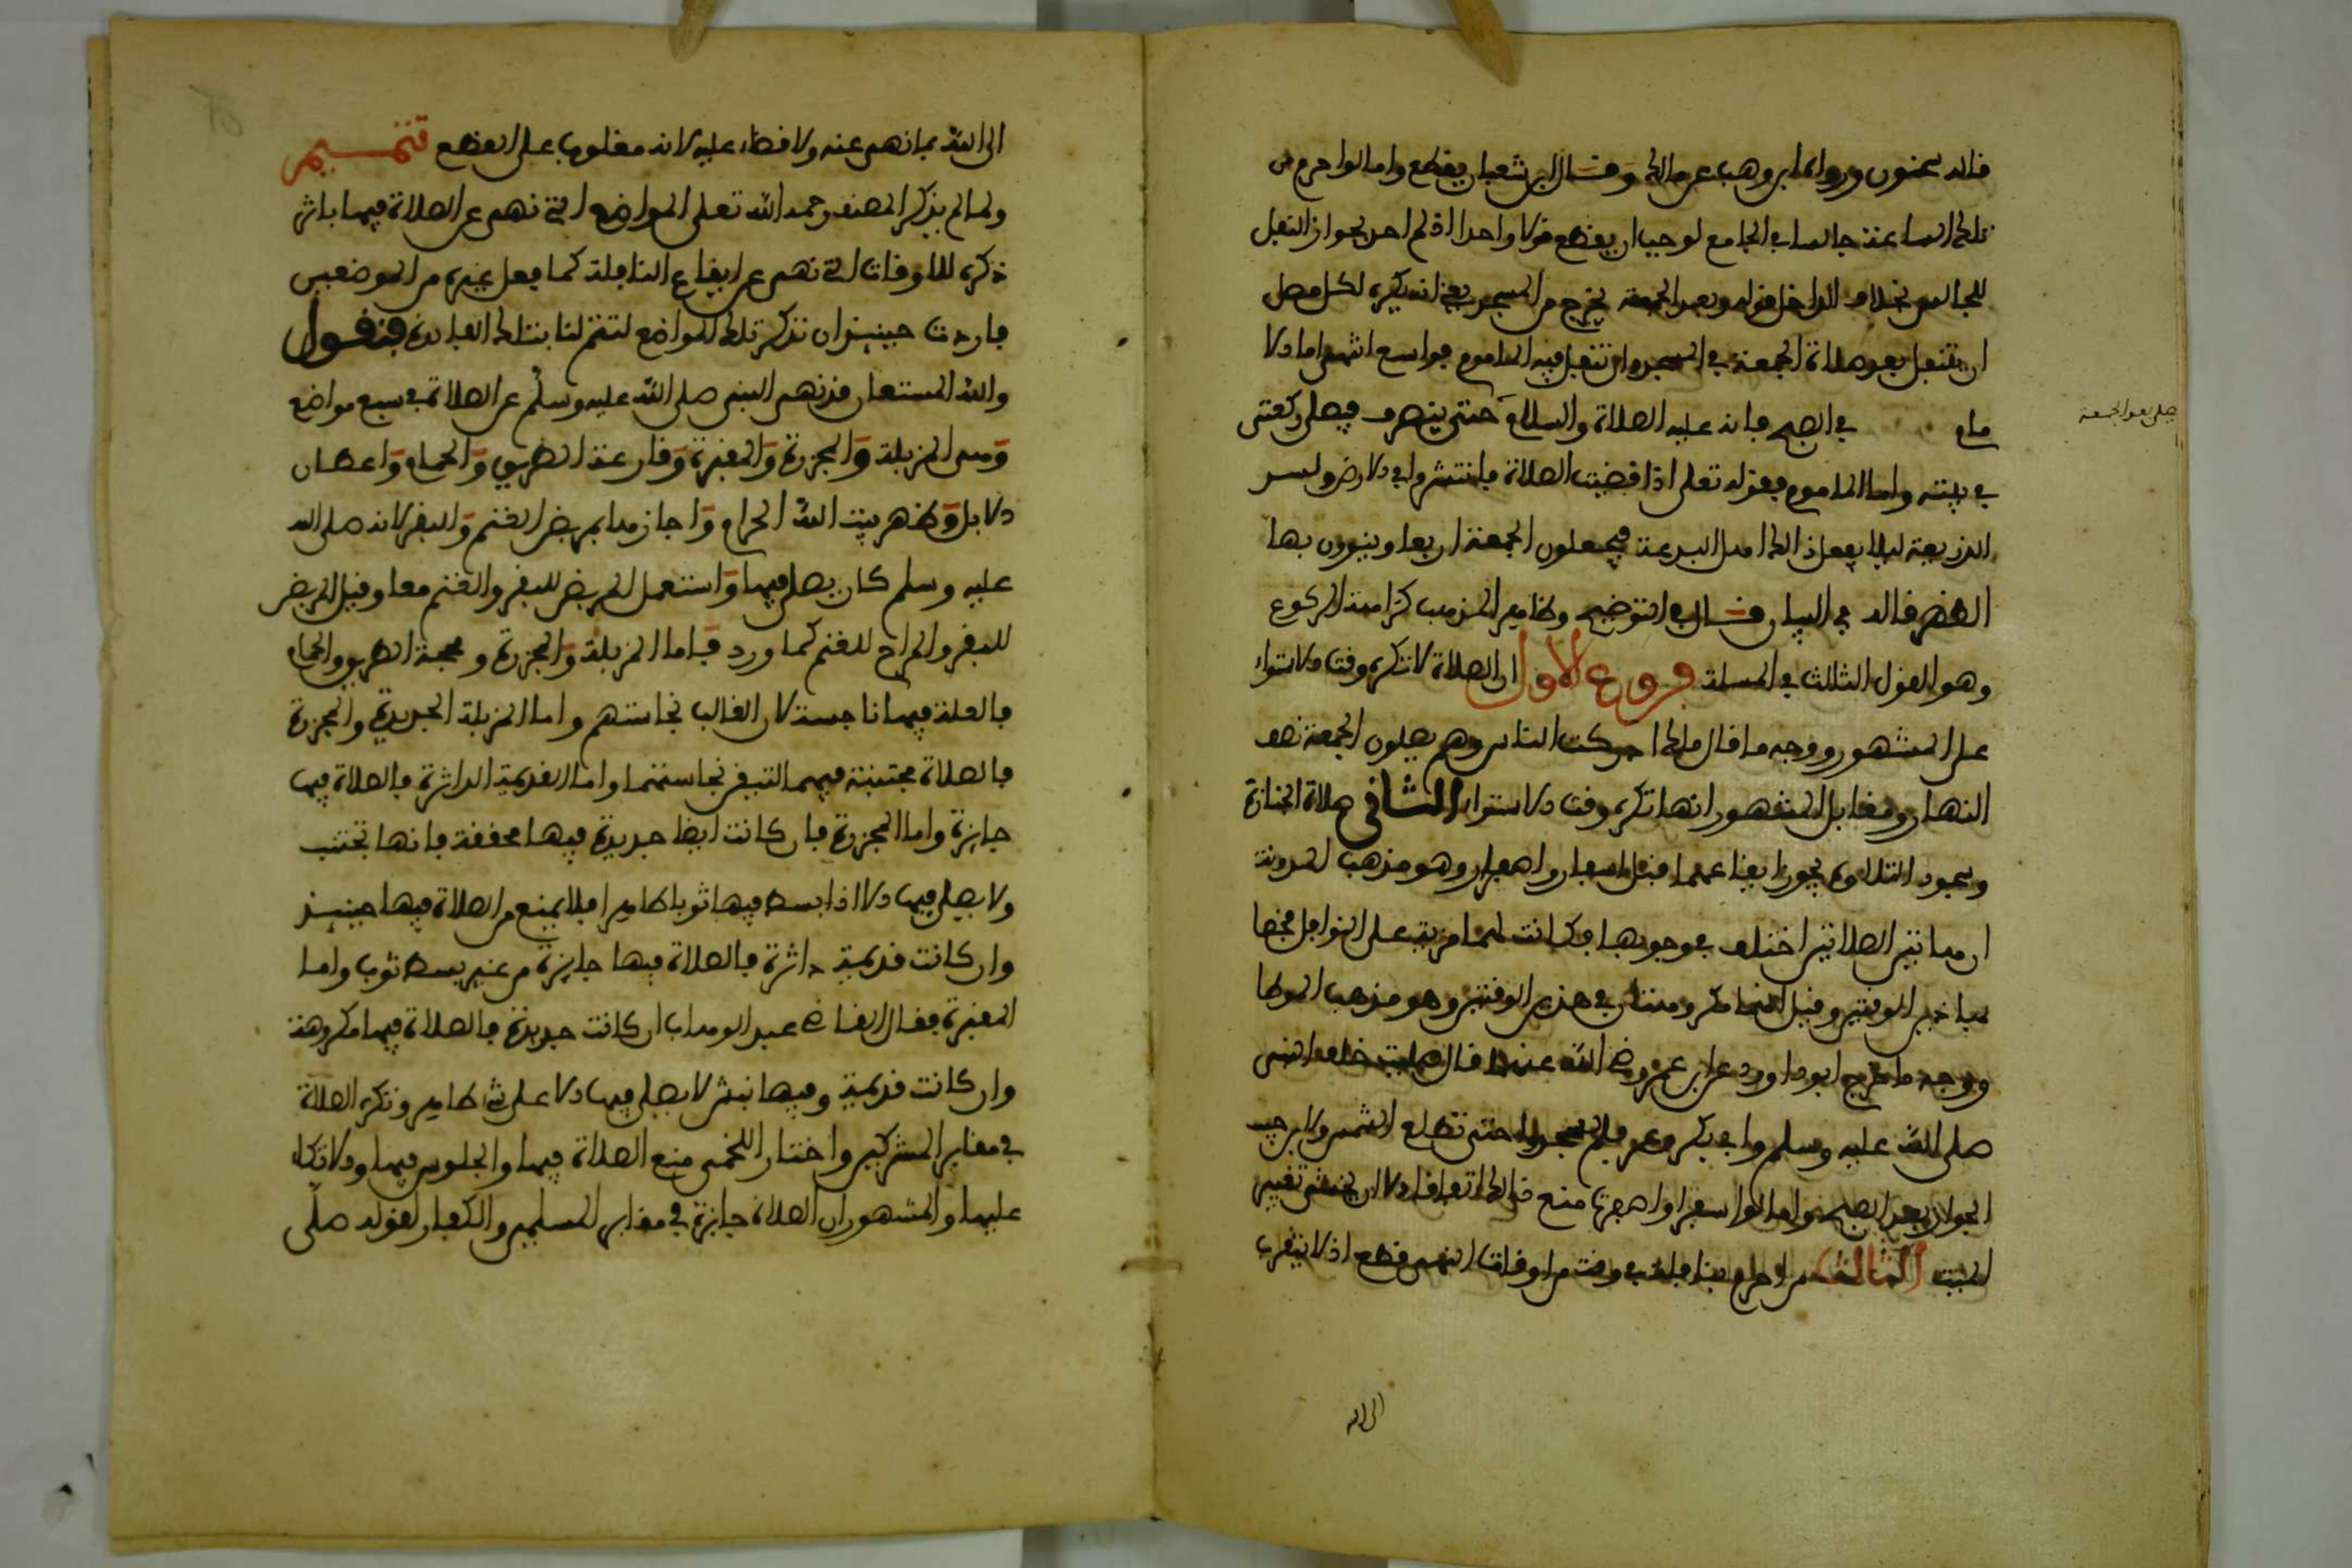 قاله سحنون ورواه ابن وهب عن مالك وقال ابن شعبان يقطع واما لو احرم من
تلك الساعة جالسا في الجامع لوجب ان يقطع قولا واحدا اذ لم احد بجواز التنفل
للجالس بخلاف الداخل قوله وبعد الجمعة يخرج من المسجد يعني انه يكره لكل مصل
ان يتنفل بعد صلاة الجمعة في المسجد وان تنفل فيه الماموم فواسع انتهى اما الا
مام في الصح فانه عليه الصلاة والسلام حتى ينصرف فيصلي ركعتين
صلى بعد الجمعة
في بيته واما الماموم فقوله تعلى اذا قضيت الصلاة فانتشروا في الارض ولسد
الذريعة ليلا يفعل ذالك اهل البدعة فيجعلون الجمعة اربعا وينوون بها
الظهر قاله في البيان قال في التوضيح وظاهر المذهب كراهة الركوع
وهو القول الثالث في المسلة فروع الاول ان الصلاة لا تكره وقت الاستواء
على المشهور ووجه ما قال مالك ادركت الناس وهم يصلون الجمعة نصف
النهار ومقابل المشهور انها تكره وقت الاستواء الثاني صلاة الجنازة
وسجود التلاوة يجوز ايقاعهما قبل اسفار واصفرار وهو مذهب المدونة
ان هاتين الصلاتين اختلف في وجوبهما فكانت لهما مزية على النوافل فخصا
بما خير الوقتين وقيل انهما مكروهتان في هذين الوقتين وهو مذهب الموطا
ووجه ما خرج ابو داوود عن ابن عمر رضي الله عنه قال صليت خلف النبي
صلى الله عليه وسلم وابي بكر وعمر فلم يسجدوا حتى تطلع الشمس ولابن حبيب
الجواز بعد الصبح واما لو اسفر او اصفرت منع ذالك اتفاقا الا ان يخشى تغيير
الميت الثالث من احرم بنافلة في وقت من اوقات النهي قطع اذ لا يتقرب
الى الله
الى الله بما نهى عنه ولا قضاء عليه لانه مغلوب على القطع تتميم
ولما لم يذكر المصنف رحمه الله تعلى المواضع التي نهي عن الصلاة فيها باثر
ذكره للاوقات التي نهي عن ايقاع النافلة كما يفعل غيره من الموضعين
فاردت حينيذ ان نذكر تلك المواضع لتتم لنا بتلك الفايدة فنقول
والله المستعان قد نهى النبي صلى الله عليه وسلم عن الصلاة في سبع مواضع
وهي المزبلة والمجزرة والمقبرة وقارعة الطريق والحمام واعطان
الابل وظهر بيت الله الحرام واجازها بمربض الغنم والبقر لانه صلى الله
عليه وسلم كان يصلي فيها واستعمل المربض للبقر والغنم معا وقيل المربض
للبقر والمراح للغنم كما ورد فاما المزبلة والمجزرة ومحجة الطريق والحمام
فالعلة فيها ناجسة لان الغالب نجاستهم واما المزبلة الجديدة والمجزرة
فالصلاة مجتنبة فيهما لتيقن نجاستهما واما القديمة الداثرة فالصلاة فيها
جايزة واما المجزرة فان كانت ايضا جديدة فيها محققة فانها تجتنب
ولا يصلي فيها الا اذا بسط فيها ثوبا طاهرا فلا يمنع من الصلاة فيها حينيذ
وان كانت قديمة داثرة فالصلاة فيها جايزة من غير بسط ثوب واما
المقبرة فقال القاضي عبد الوهاب ان كانت جديدة فالصلاة فيها مكروهة
وان كانت قديمة وفيها نبش لا يصلي فيها الا على شي طاهر وتكره الصلاة
في مقابر المشركين واختار اللخمي منع الصلاة فيها والجلوس فيها والاتكاء
عليها والمشهور ان الصلاة جايزة في مقابر المسلمين والكفار لقوله صلى